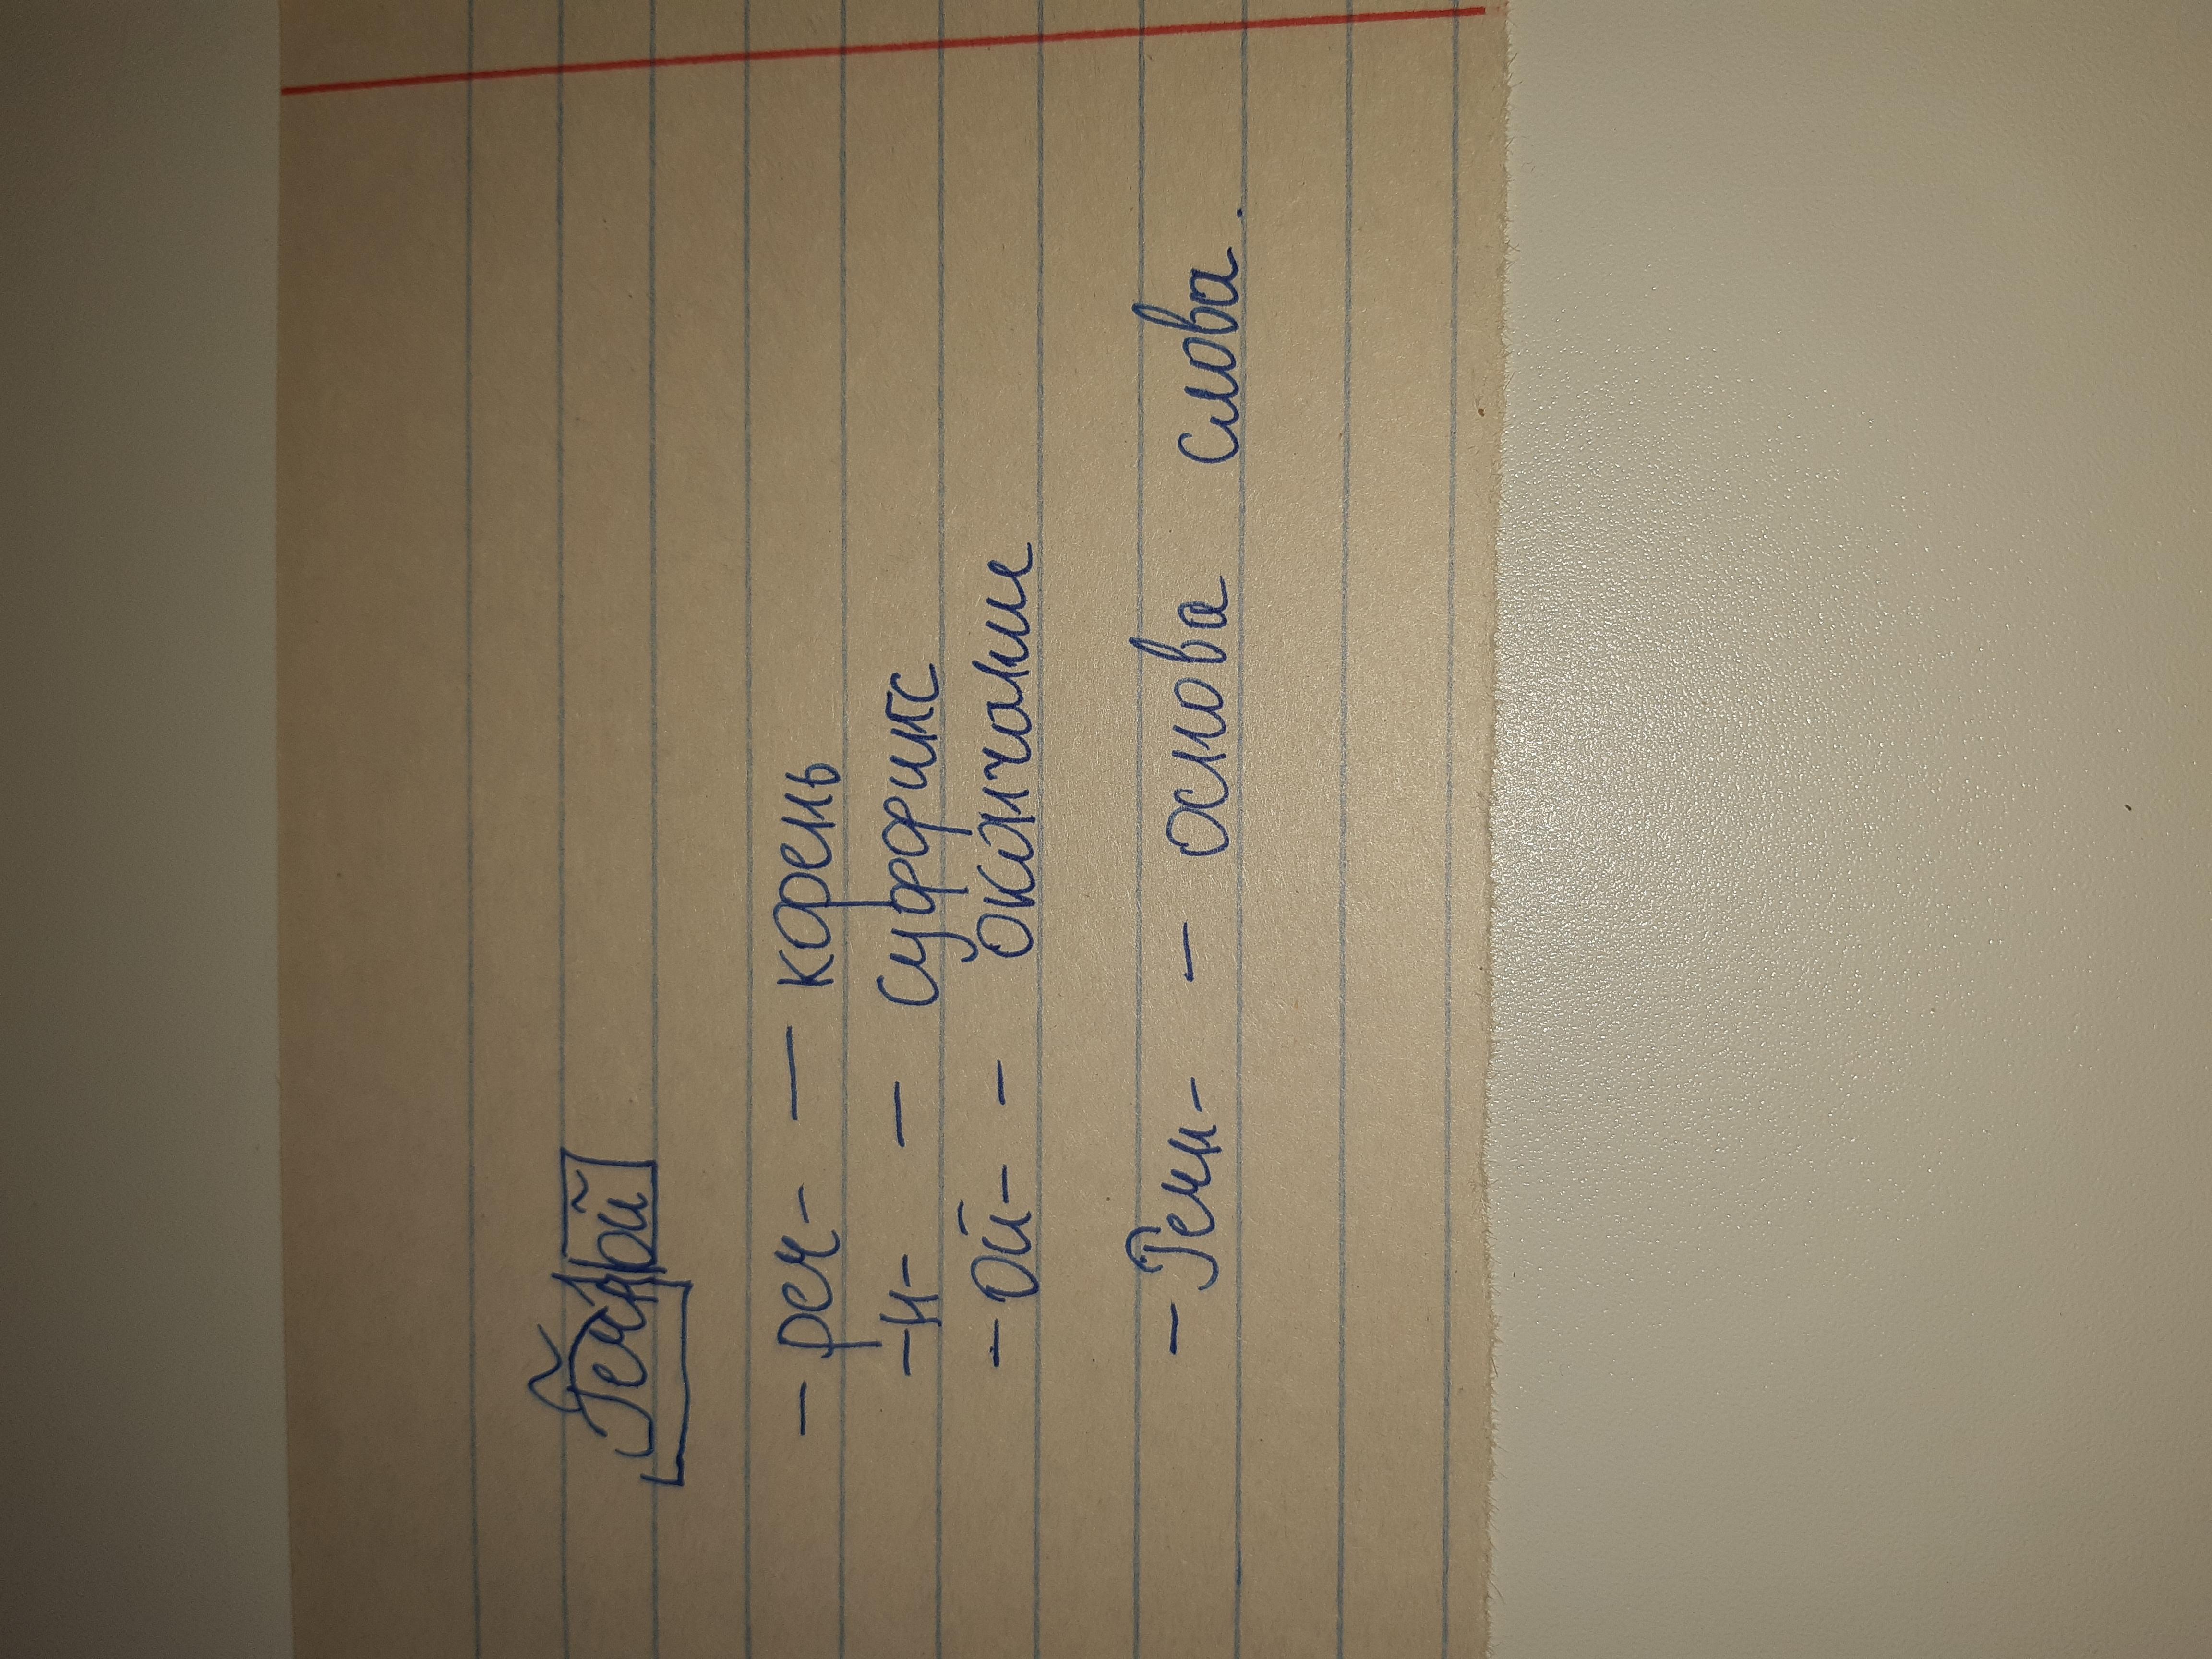 Речной
- реч- - корень
- н- - суффикс
- ой- - окончание
- Речн- - основа слова.